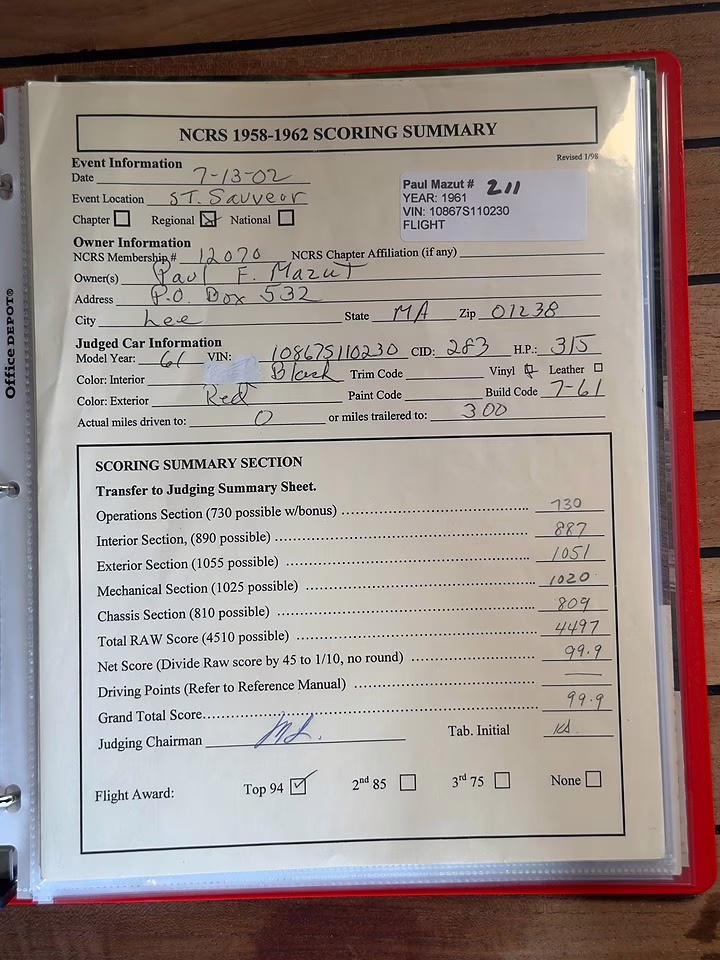 NCRS 1958-1962 SCORING SUMMARY
Revised 1/98
Event Information
Date 7-13-02
Event Location ST. Sauveur
Chapter Regional National
Paul Mazut # 211
YEAR: 1961
VIN: 10867S110230
FLIGHT
Owner Information
NCRS Membership# 12070 NCRS Chapter Affiliation (if any)
Owner(s) Paul F. Mazut
Address P.O. Box 532
City Lee State MA Zip 01238
Judged Car Information
Model Year: 61 VIN: 10867S110230 CID: 283 H.P.: 315
Color: Interior Black Trim Code Vinyl Leather
Color: Exterior Red Paint Code Build Code 7-61
Actual miles driven to: 0 or miles trailered to: 300
SCORING SUMMARY SECTION
Transfer to Judging Summary Sheet.
Operations Section (730 possible w/bonus) 730
Interior Section, (890 possible) 887
Exterior Section (1055 possible) 1051
Mechanical Section (1025 possible) 1020
Chassis Section (810 possible) 809
Total RAW Score (4510 possible) 4497
Net Score (Divide Raw score by 45 to 1/10, no round) 99.9
Driving Points (Refer to Reference Manual) —
Grand Total Score 99.9
Judging Chairman Tab. Initial
Flight Award: Top 94 2nd 85 3rd 75 None
Office DEPOT®